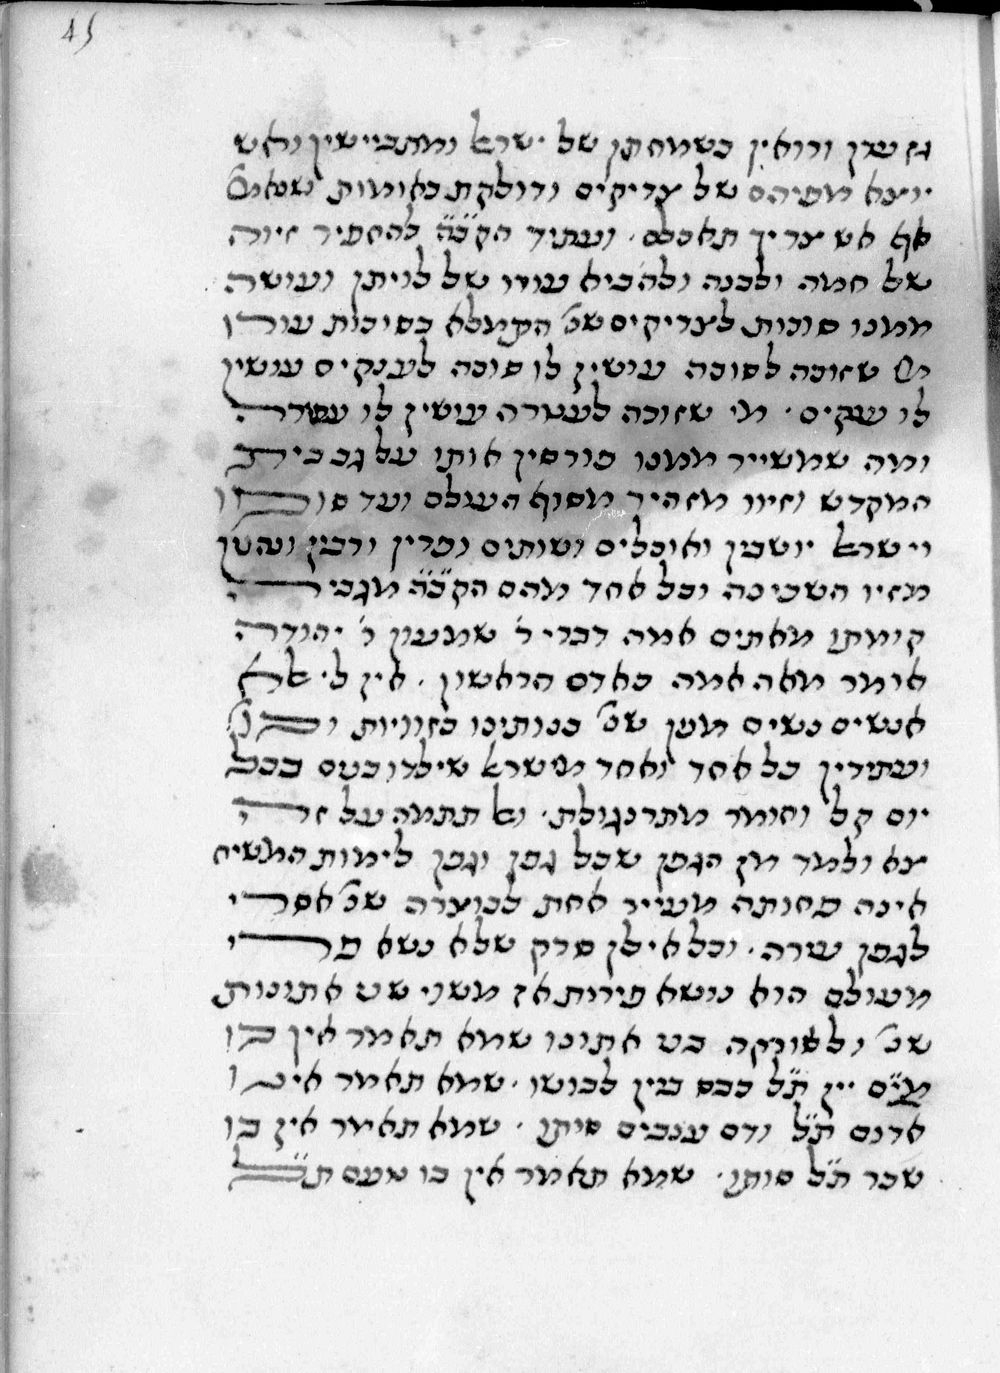 45
גן עדן ורואין בשמחתן של ישראל ומתביישין ואש
יוצא מפיהם של צדיקים ודולקת באומות שנאמ'
אף אש צריך תאכלם. ועתיד הק"בה להחפיר זיוה
של חמה ולבנה ולהביא עורו של לויתן ועושה
ממנו סוכות לצדיקים שנ' התמלא בסוכות עורו
מי שזוכה לסוכה עושין לו סוכה לענקים עושין
לו ענקים. מי שזוכה לעטרה עושין לו עטרה
ומה שמשייר ממנו פורסין אותו על גב בית
המקדש וזיוו מזהיר מסוף העולם ועד סופו
וישראל יושבין ואוכלים ושותים ופרין ורבין ונהנין
מזיו השכינה וכל אחד מהם הק"בה מגביה
קומתו מאתים אמה דברי ר' שמעון ר' יהודה
אומר מאה אמה כאדם הראשון. אין לי אלא
אנשים נשים מנין שנ' בנותינו כזויות
ועתידין כל אחד ואחד מישראל שילדו בנים בכל
יום קל וחומר מתרנגולת. ואל תתמה על זה
צא ולמד מן הגפן שכל גפן וגפן לימות המשיח
אינה פחותה מעייר אחת לבוצרה שנ' אסרי
לגפן עירה. וכל אילן סרק שלא נשא פרי
מעולם הוא נושא פירות אז משני שט אתונות
שנ' ולשורקה בני אתונו שמא תאמר אין בו
יין ת"ל כבס ביין לבושו. שמא תאמר אינו
אדום ת"ל ודם ענבים סותו. שמא תאמר אין בו
שכר ת"ל סותו. שמא תאמר אין בו טעם ת"ל